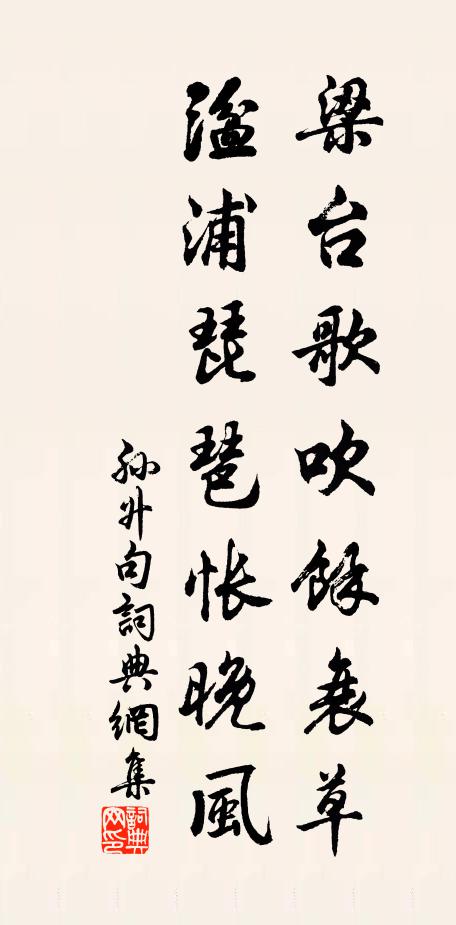 梁台歌吹餘衰草
湓浦琵琶悵晚風
孫升句詞典網集
詞典
网印